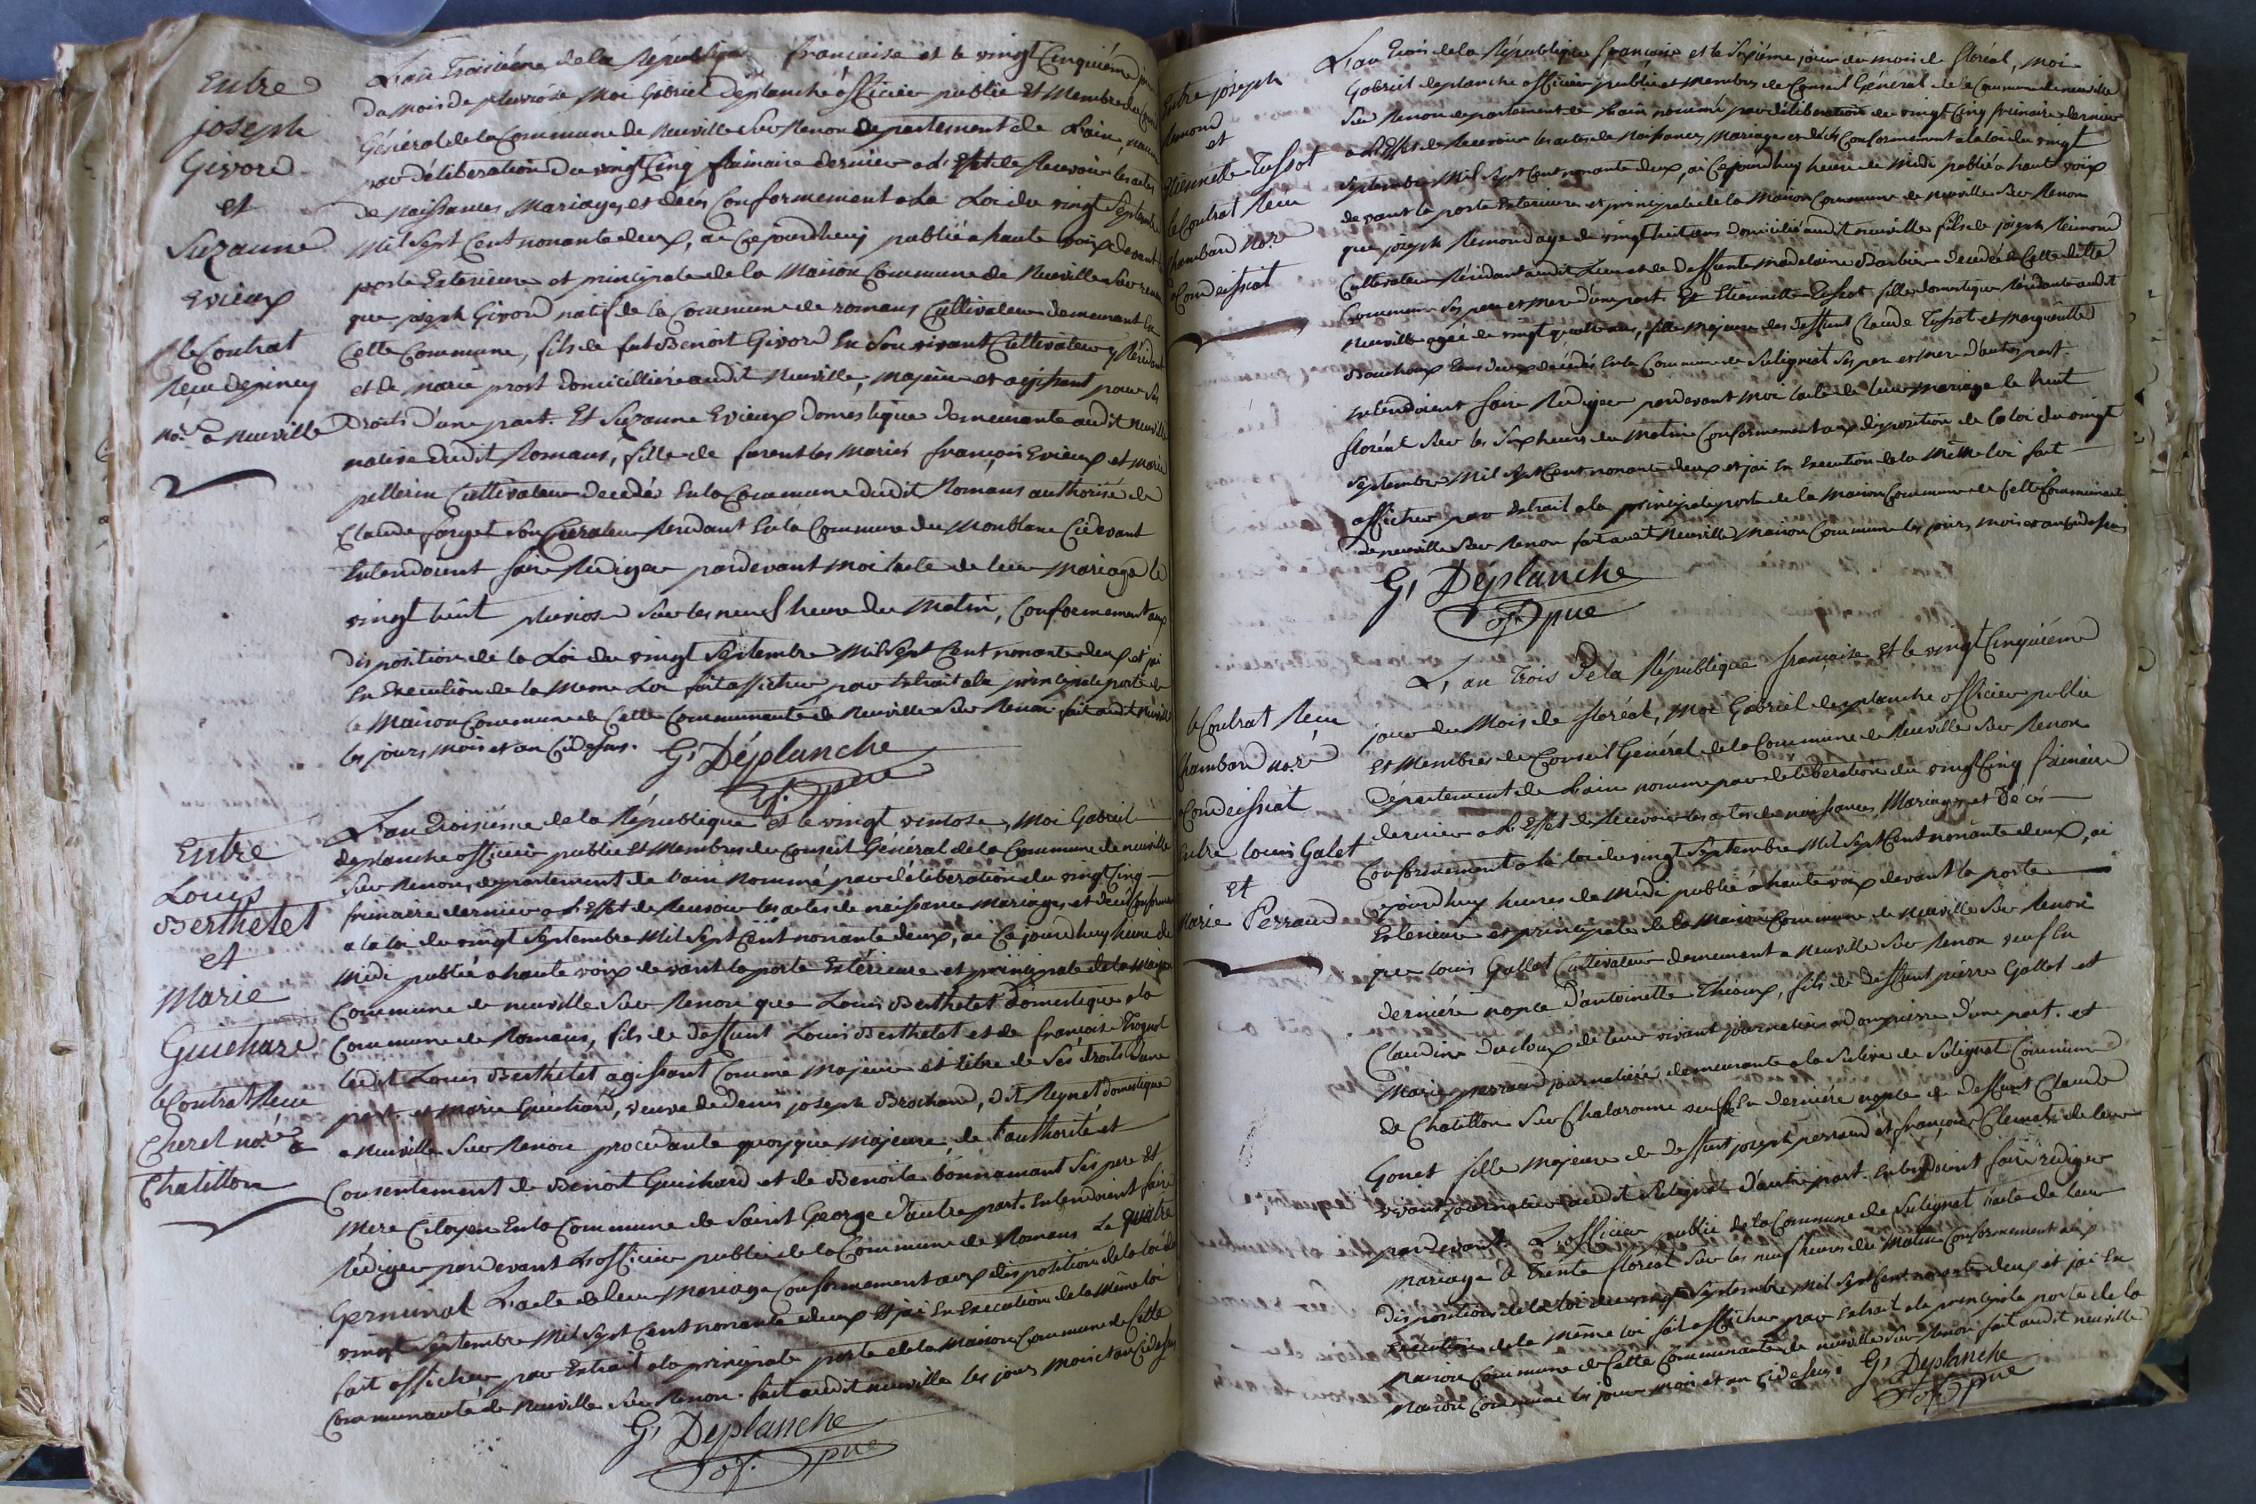 Entre
joseph
Givord
et
Suzanne
Evieux
le Contrat
Recu depiney
No.re a neuville
L'an Troisiéme de la République francaise et le vingt Cinquiéme
Du Mois de pluviose Moi Gabriel Déplanche officier public Et Membre du
Général de la Commune de Neuville Sur Renon Departement de L'ain,
par déliberation du vingt Cinq frimaire dernier a L'Effet de Recevoir les actes
de Naissances Mariages et deces Conformement a La Loi du vingt Septembre
Mil Sept Cent nonante deux, ai Cejourdhuy publié a haute voix devant
porte Exterieure et principale de la Maison Commune de Neuville Sur renon
que joseph Givord natif de la Commune de romans Cultivateur demeurant En
Cette Commune, fils de fut Benoit Givord En Son vivant Cultivateur y Residant
et de Marie prost Domicilliére audit Neuville, Majeur et agissant pour Ses
Droits D'une part. Et Suzanne Evieux Domestique demeurante audit neuville
native dudit Romans, fille de furent les Mariés françois Evieux et Marie
pellerin Cultivateur decedés En la Commune dudit Romans authorisé de
Claude forget son Curateur Residant En la Commune du Monblanc Cidevant
Entendoient faire Rediger pardevant Moi lacte de leur Mariage le
vingt huit pluviose Sur les neuf heure du Matin, Conformement aux
Disposition de la Loi du vingt Septembre Mil Sept Cent nonante deux et jai
En Execution de la Meme Loi fait afficher par Extrait a la principale porte de
la Maison Commune de Cette Communauté de Neuville Sur Renon fait audit Neuville
les jours Mois et an Cidessus. G. Déplanche
of. pue
Entre
Louis
Berthelet
et
Marie
Guichard
le Contrat Recu
Cheret no.re a
Chatillon
L'an Troisiéme de la République Et le vingt ventose, Moi Gabriel
deplanche officier public Et Membre du Conseil Général de la Commune de neuville
Sur Renon, departement de L'ain Nommé par déliberation du vingt Cinq
frimaire dernier a L'Effet de Recevoir les actes de naissance Mariages et decés
a la loi du vingt Septembre Mil Sept Cent nonante deux, ai Cejourdhuy heure de
Midi publié a haute voix devant la porte Extérieure et principale de la Maison
Commune de neuville Sur Renon que Louis Berthelet domestique a la
Commune de Romans, fils de deffunt Louis Berthelet et de françoise
ledit Louis Berthelet agissant Comme Majeur et libre de Ses droits D'une
part. et Marie Guichard, veuve de denis joseph Brochand, dit Reynet domestique
a Neuville Sur Renon procedante quoyque Majeure, de l'authorité et
Consentement de Benoit Guichard et de Benoite bonnamant Ses pere et
Mere Citoyen En la Commune de Saint George d'autre part. Entendoient faire
Rédiger par devant L'officier public de la Commune de Romans Le quatre
Germinal L'acte de leur Mariage Conformement aux disposition de la loi du
vingt Septembre Mil Sept Cent nonante deux Et jai En Execution de la Même loi
fait afficher par Extrait a la principale porte de la Maison Commune de Cette
Communauté de Neuville Sur Renon. fait audit neuville les jours Mois et an Cidessus
G. Déplanche
of. pue
Entre joseph
Remond
et
Etiennette Tussot
le Contrat Recu
Chambard No.re
a Condeissiat
L'an Trois de la République française et le Sixiéme jour du mois de floréal, Moi
Gabriel deplanche officier public et Membre du Conseil Général de la Commune de neuville
Sur Renon departement de L'ain nommé par déliberation du vingt Cinq frimaire dernier
a L'Effet de Recevoir les actes de Naissances Mariages et decés Conformement a la loi du vingt
Septembre Mil Sept Cent nonante deux, ai Cejourdhuy heure de Midi publié a haute voix
devant la porte Exterieure et principale de la Maison Commune de neuville Sur Renon
que joseph Remond age de vingt huit ans domicilié audit neuville fils de joseph Remond
Cultivateur Résidant audit Lieu et de Deffunte Madelaine Barbier decedée En Cette ditte
Commune Ses pere et Mere d'une part. Et Etiennette Tussot fille domestique Residante audit
neuville agée de vingt quatre ans, fille Majeure des deffunt Claude Tussot et Marguerite
Bauchoux Tous deux decédés En la Commune de Suligniat Ses pere et Mere d'autre part.
Entendoient faire Rédiger pardevant Moi lacte de leur mariage le huit
floréal Sur les Six heures du Matin Conformement aux disposition de la loi du vingt
Septembre Mil Sept Cent nonante deux et jai En Execution de la Même loi fait
afficher par Extrait a la principale porte de la Maison Commune de Cette Communauté
de neuville Sur Renon fait audit Neuville Maison Commune les jours Mois et an cidessus
G. Déplanche
of. pue
le Contrat Recu
Chambard no.re
a Condeissiat
Entre Louis Galet
et
Marie Perraud
L'an Trois De la République francaise Et le vingt Cinquiéme
jour du Mois de floréal, Moi Gabriel deplanche officier public
Et Membre du Conseil Général de la Commune de Neuville Sur Renon
Département de L'ain nommé par deliberation du vingt Cinq frimaire
dernier a L'Effet de Recevoir les actes de naissances Mariages et Décés
Conformement a la loi du vingt Septembre Mil Sept Cent nonante deux, ai
Cejourdhuy heures de Midi publié a haute voix devant la porte
Exterieure et principale de la Maison Commune de neuville Sur Renon
que louis Gallet Cultivateur demeurant a Neuville Sur Renon veuf En
derniére nopce D'antoinette Thioux, fils de Deffunt pierre Gallet et
Claudine Ducloux de leur vivant journaliers a Dompierre d'une part. et
Marie perraud journaliére demeurante a la Suline de Sulignat Commune
de Chatillon Sur Chalaronne veuf En derniére nopce de deffunt Claude
Gonet fille majeure de deffunt joseph perraud et françoise Clement de leur
vivant journalier audit Sulignat d'autre part. Entendoient faire rédiger
pardevant L'officier public de la Commune de Sulignat lacte de leur
Mariage le Trente floréal Sur les neuf heures du Matin Conformement aux
Disposition de la loi du vingt Septembre Mil Sept Cent nonante deux et jai En
Execution de la Même loi fait afficher par Extrait a la principale porte de la
Maison Commune de Cette Communauté de neuville Sur Renon fait audit neuville
Maison Commune les jour Mois et an cidessus. G. Déplanche
of. pue